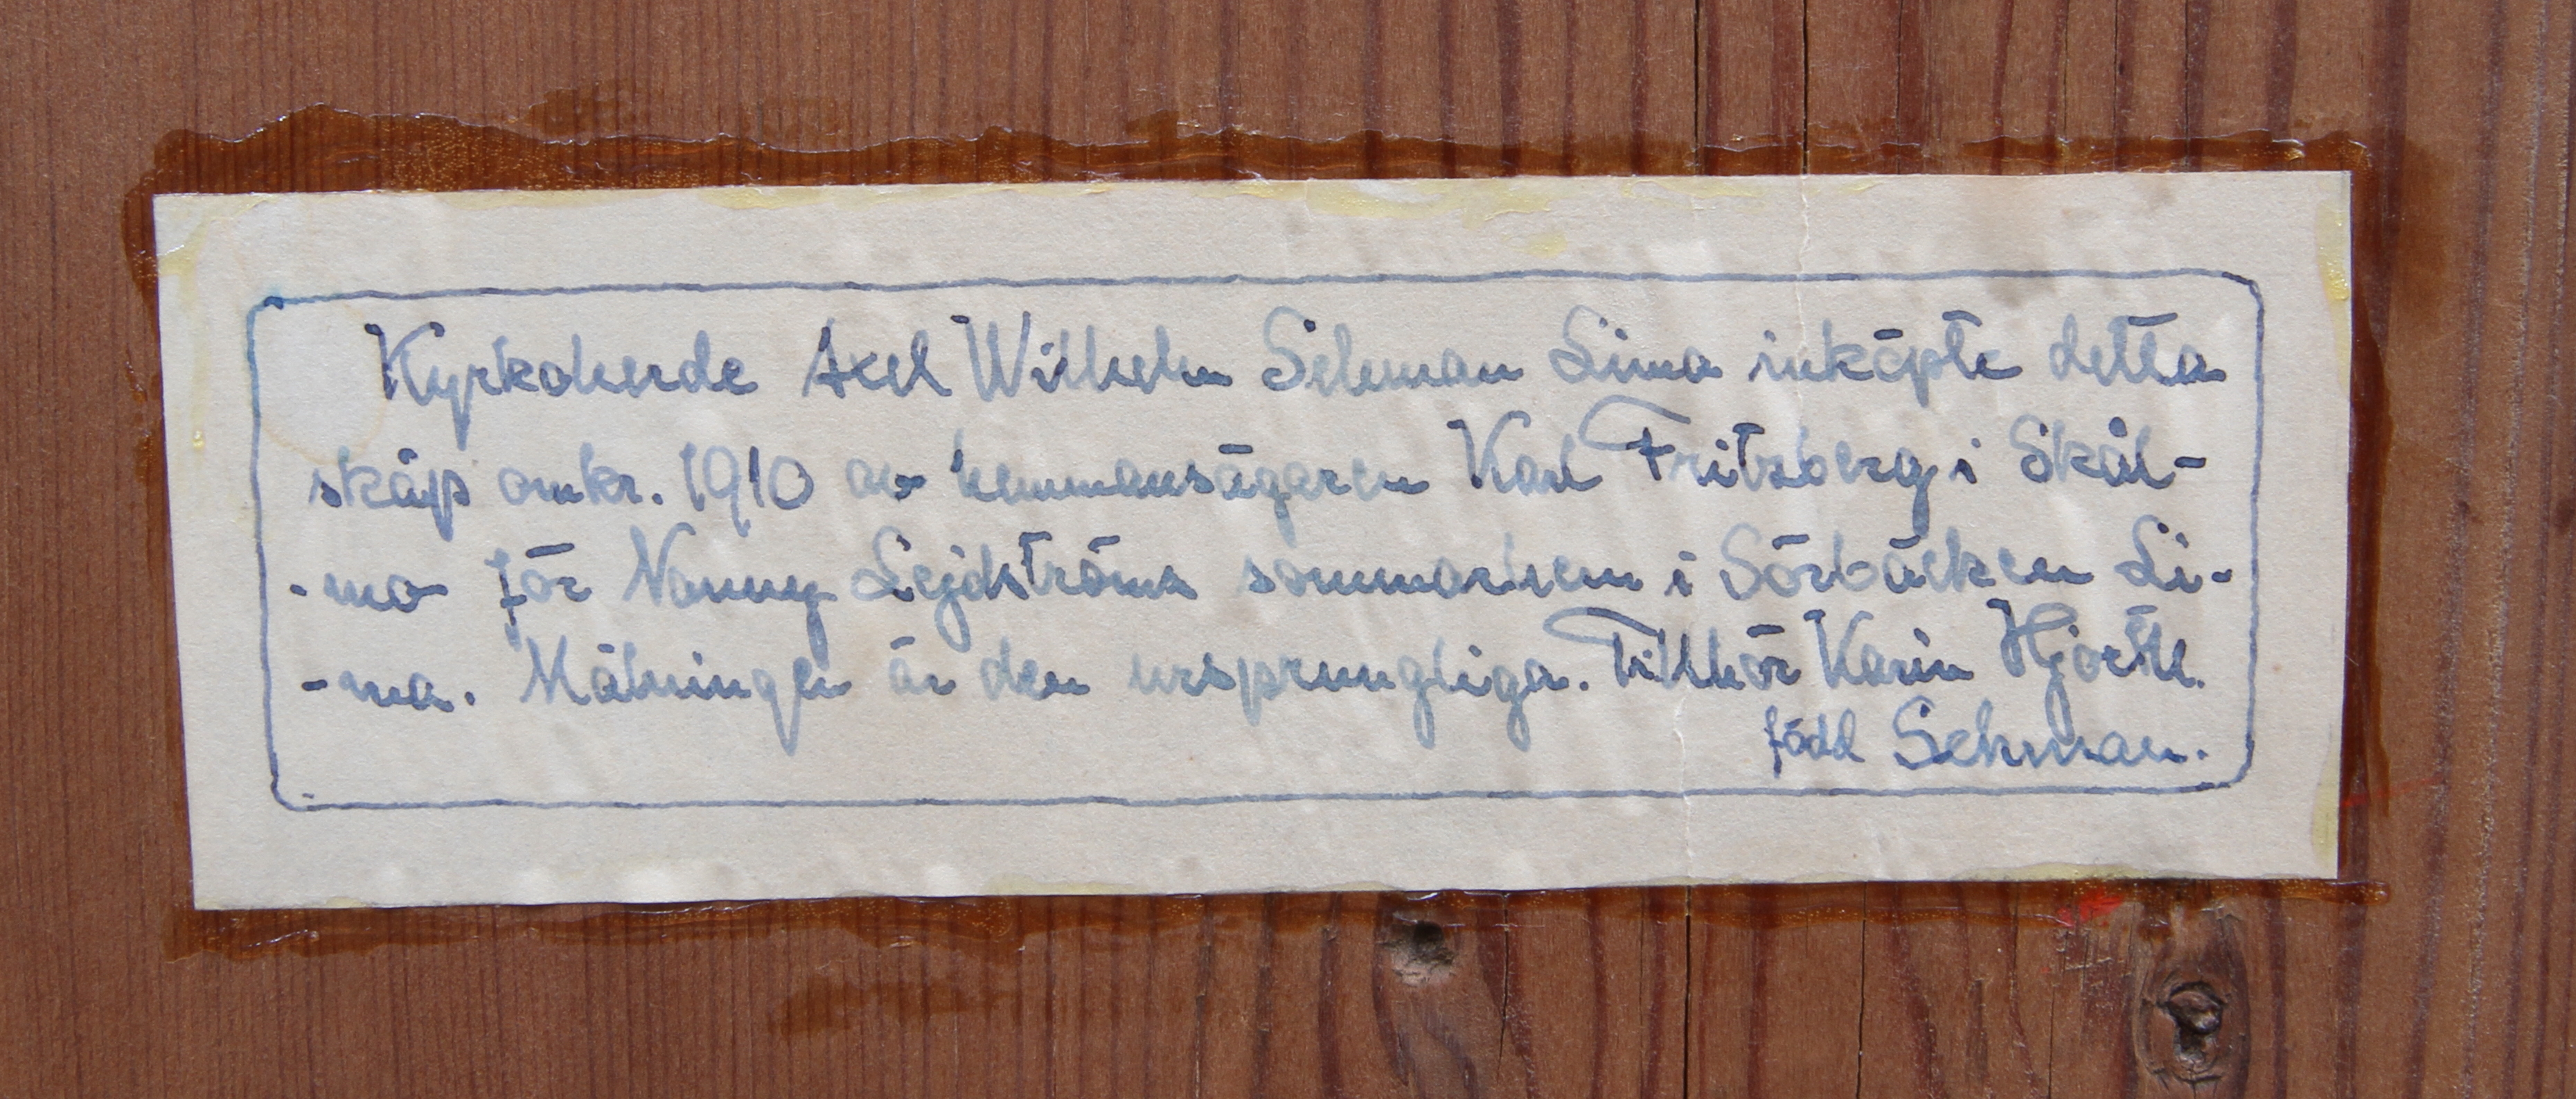 Kyrkoherde Axel Wilhelm Sehman Lima inköpte detta
skåp omkr. 1910 av hemmansägaren Karl Fritzberg i Skål-
-mo för Nanny Lejdströms sommarhem i Sörbäcken Li-
-ma. Målningen är den ursprungliga. Tillhör Karin Hjorth.
född Sehman.